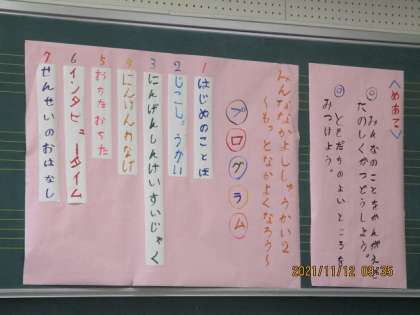 <めあて>
◎みんなのことをかんがえて
たのしくかつどうしよう。
◎ともだちのよいところを
みつけよう。
みんななかよししゅうかい2
～もっとなかよくなろう～
プログラム
1 はじめのことば
2 じこしょうかい
3 にんげんしんけいすいじゃく
4 にんげんわなげ
5 おちたおちた
6 インタビュータイム
7 せんせいのおはなし
2021/11/12 09:35